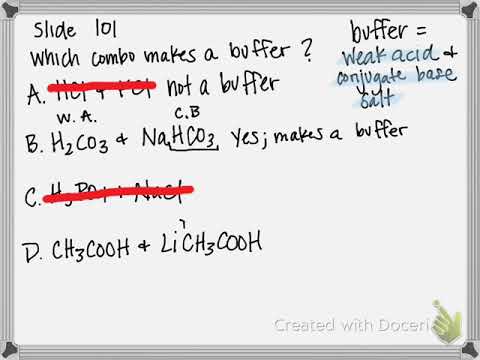 Slide 101
Which combo makes a buffer ?
buffer =
weak acid &
conjugate base
salt
A. not a buffer
W.A. C.B
B. H2CO3 & NaHCO3 yes; makes a buffer
C.
D. CH3COOH & LiCH3COOH
Created with Doceri